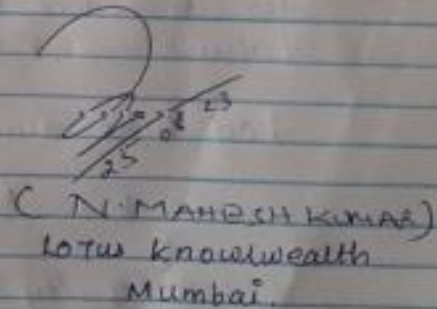 25 08 23
( N. MAHESH KUMAR)
Lotus Knowlwealth
Mumbai.